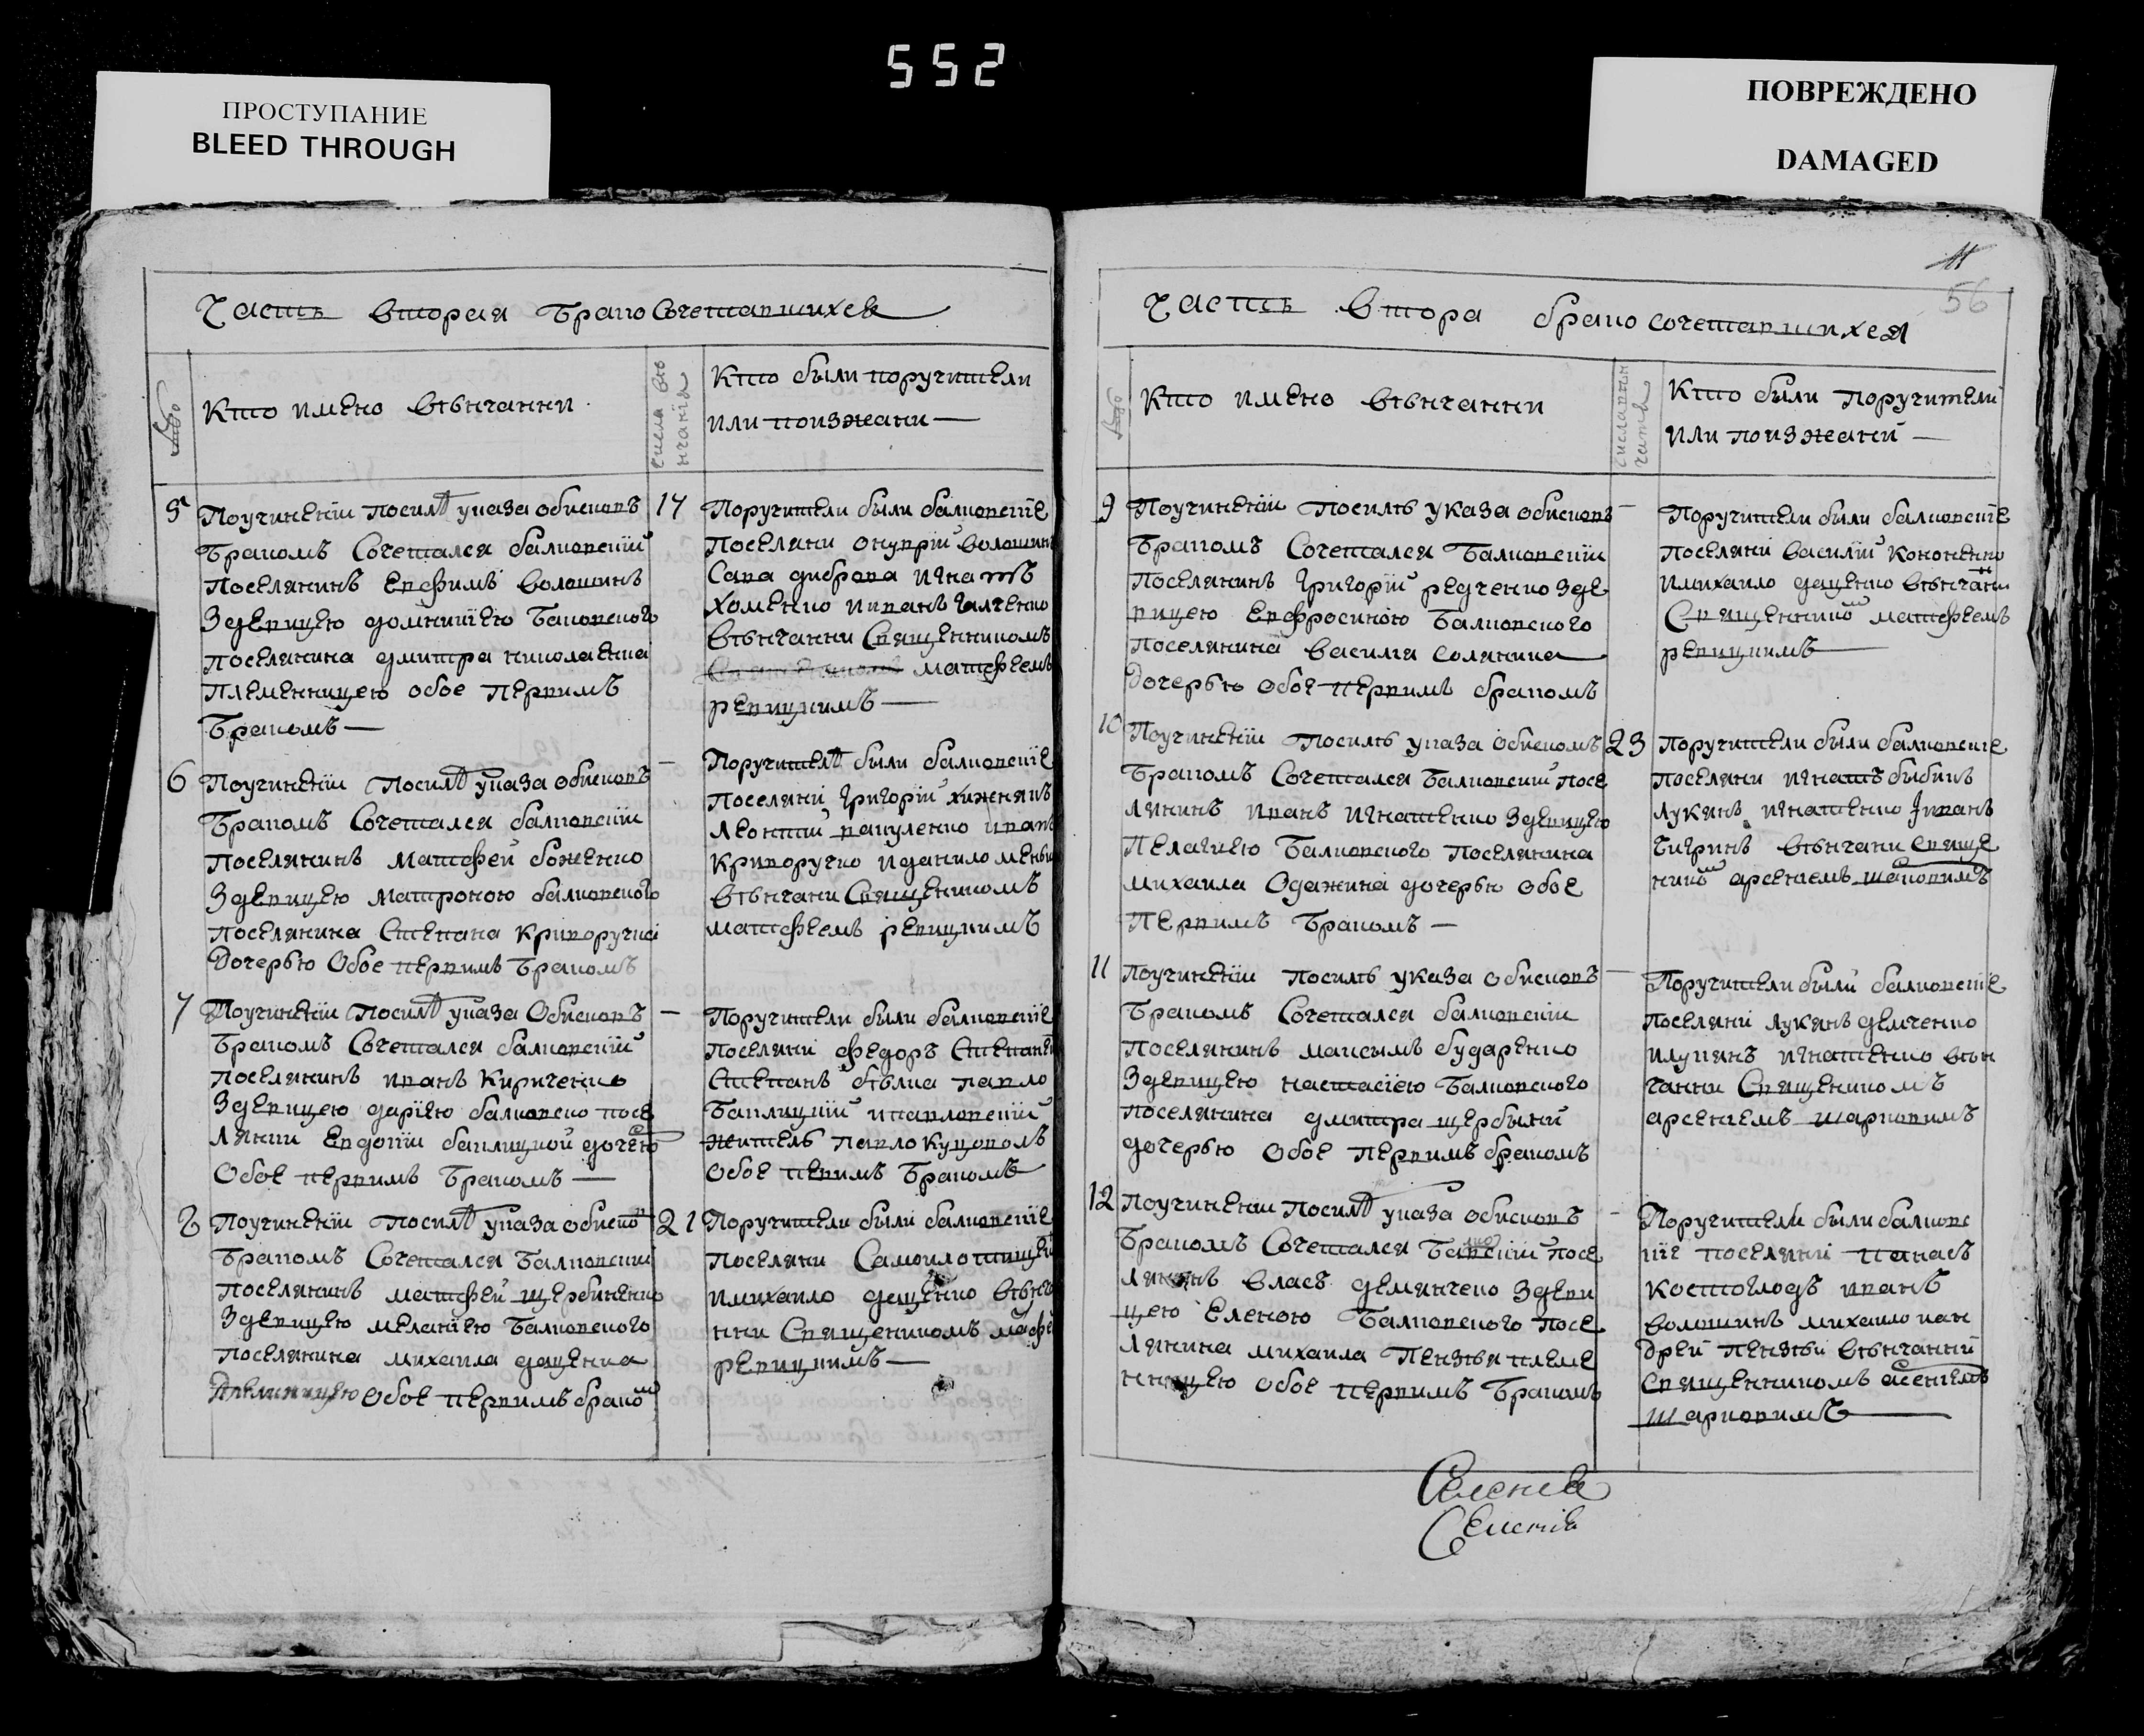 552
ПРОСТУПАНИЕ
BLEED THROUGH
ПОВРЕЖДЕНО
DAMAGED
Часть вторая Бракосочетавшихся
Кто имено венчанни
числа вен
чанiя
Кто были поручители
или поизжани
5
Поучиненiи посилѣ указа обисковъ
Бракомъ Сочетался балковскiй
поселянинъ Евфимъ волошинъ
Здевицею домникiею Балковского
поселянина дмитра николаенка
племенницею обое первимъ
Бракомъ
17
Поручители были балковскiе
поселяни онупрiй волошинъ
Сава диброва игнатъ
хоменко ииванъ галченко
венчанни Священникомъ
матфеемъ
ревицкимъ
6
Поучиненiи Посилѣ указа обисковъ
Бракомъ Сочетался балковскiи
поселянинъ Матфей боженко
Здевицею матроною балковского
поселянина Степана криворучка
Дочерью Обое первимъ Бракомъ
Поручителѣ были балковскiе
поселянi Григорiй хижнякъ
леонтiй вакуленко иванъ
криворучко иданило
венчани Священикомъ
матфеемъ ревицкимъ
7
Поучиненiи Посилѣ указа Обисковъ
Бракомъ Сочетался балковскiй
поселянинъ иванъ Кириченко
Здевицею дарiею балковско посе
лянки Евдокiи баклицкой дочерю
Обое первимъ Бракомъ
Поручители были балковскiе
поселянi федоръ
Степанъ белка павло
Баклицкiй ипавловскiй
житель павло куцоволъ
Обое первимъ Бракомъ
8
Поучиненiи Посилѣ указа обисков
Бракомъ Сочетался Балковскiи
поселянинъ матфей щербиненко
Здевицею меланiею Балковского
поселянина михаила даценка
обое первимъ браком
21
Поручители были балковскiе
поселяни Самоило
имихаило даценко венча
нни Священикомъ
ревицкимъ
11
56
Часть втора бракосочетавшихся
Кто имено венчанни
Кто были поручители
или поизжанiй
9
Поучиненiи Посилѣ указа обисковъ
Бракомъ Сочетался Балковскiи
поселянинъ григорiй редченко Зде
вицею Евфросиною Балковского
поселянина василия соляника
Дочерью обое первимъ бракомъ
Поручители были балковскiе
поселянi василiй кононенко
имихаило даценко венчани
Священником матфеемъ
ревицкимъ
10
Поучиненiи Посилѣ указа обискомъ
Бракомъ Сочетался Балковскiй посе
лянинъ иванъ игнатенко Здевицею
Пелагиею Балковского поселянина
михаила Одажина дочерью обое
Первимъ Бракомъ
23
Поручители были балковскiе
поселяни игнатъ бибикъ
лукянъ игнатенко Iиванъ
Чигринъ венчани свяще
ником арсениемъ шаповимъ
11
Поучиненiи посилѣ указа обисковъ
Бракомъ Сочетался балковскiи
поселянинъ максымъ бударенко
Здевицею настасiею Балковского
поселянина дмитра щербыни
дочерью обое первимъ бракомъ
Поручители были балковскiе
поселянi лукянъ демченко
илукянъ игнатенко вен
чанни Священикомъ
арсениемъ шарковимъ
12
Поучиненiи Посилѣ указа обисковъ
Бракомъ Сочетался Балковскiй посе
лянинъ власъ деминчено Здеви
цею Еленою Балковского посе
лянина михаила Пензѣя племе
нницею обое первимъ Бракомъ
Поручители были балковс
кiе поселянi панасъ
костоглодъ иванъ
волошинъ михаило иан
дрей пензѣй венчаннi
священникомъ асениемъ
шарковимъ